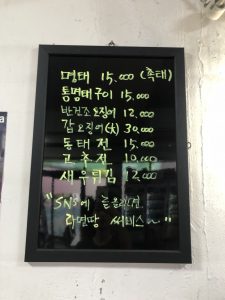 먹태 15,000 (흑태)
통명태구이 15,000
반건조오징어 12,000
갑오징어(大) 30,000
동태전 15,000
고추전 10,000
새우튀김 12,000
"SNS에 올리면
라면땅 써비스~"